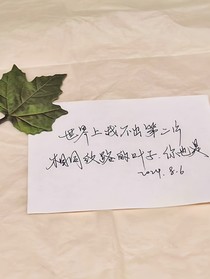 世界上找不出第二片
相同纹路的叶子,你也是
2024.8.6